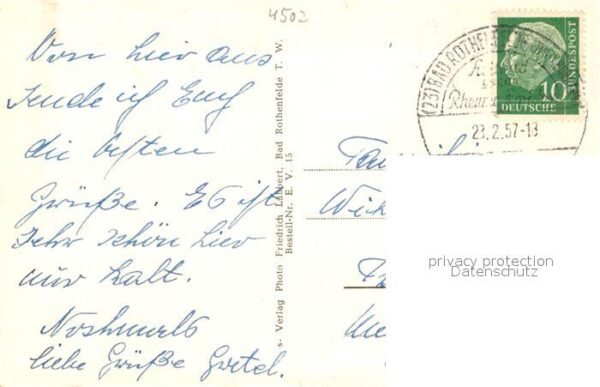 4502
Von hier aus
sende ich Euch
die besten
Grüße. Es ist
sehr schön hier
nur kalt.
Nochmals
liebe Grüße Gretel.
s- Verlag Photo Friedrich Lübbert, Bad Rothenfelde T. W.
Bestell-Nr. E. V. 15
(23) BAD ROTHENFELDE
Rheuma
23.2.57-18
10
DEUTSCHE
BUNDESPOST
Fam
privacy protection
Datenschutz